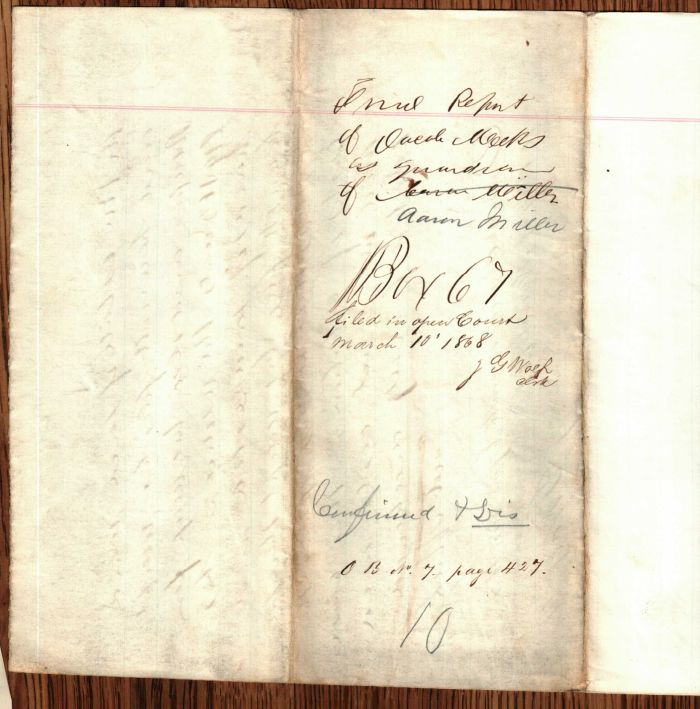 Final Report
of Jacob Meeks
as guardian
of Aaron Miller
Aaron Miller
Box 67
filed in open Court
March 10' 1868
J G Wolf
Clerk
Confirmed & Dis
O B No. 7 page 427.
10